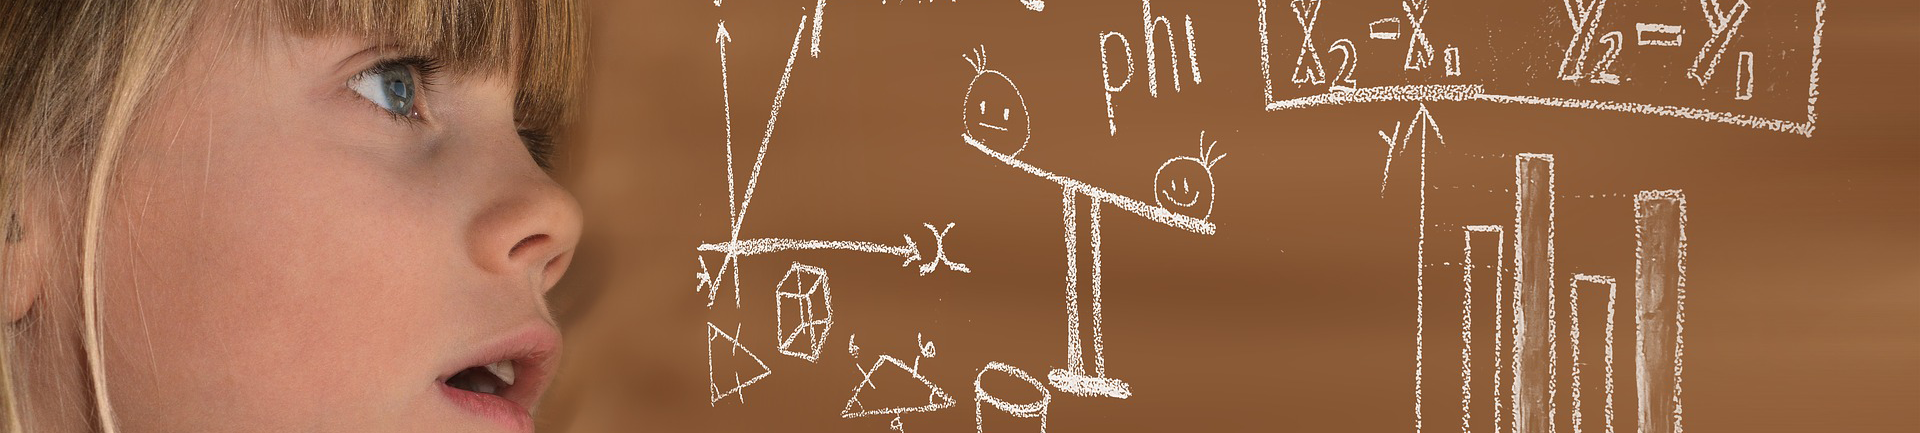 phi
X₂-X₁ Y₂=Y₁
Y
X
6 6